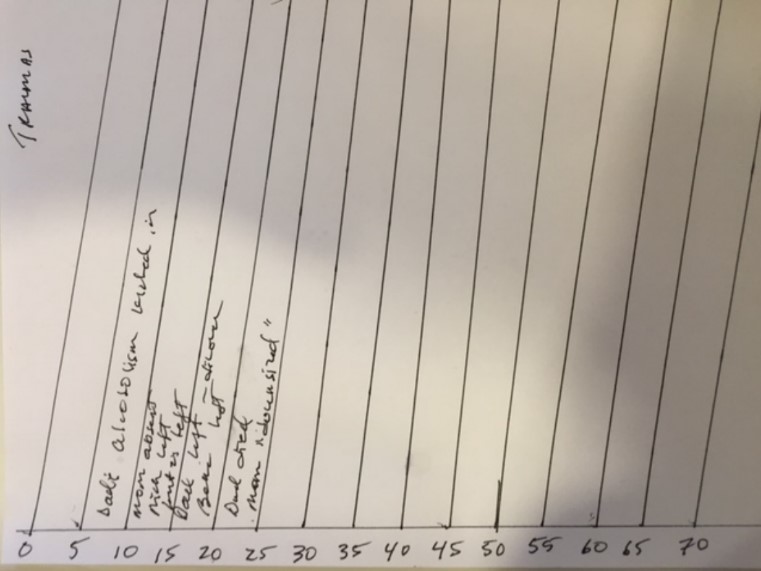 TRAUMAS
Dad's alcoholism kicked in
mom absent
Rich left
left
Dad left - divorce
left
Dad died
mom "downsized"
0 5 10 15 20 25 30 35 40 45 50 55 60 65 70